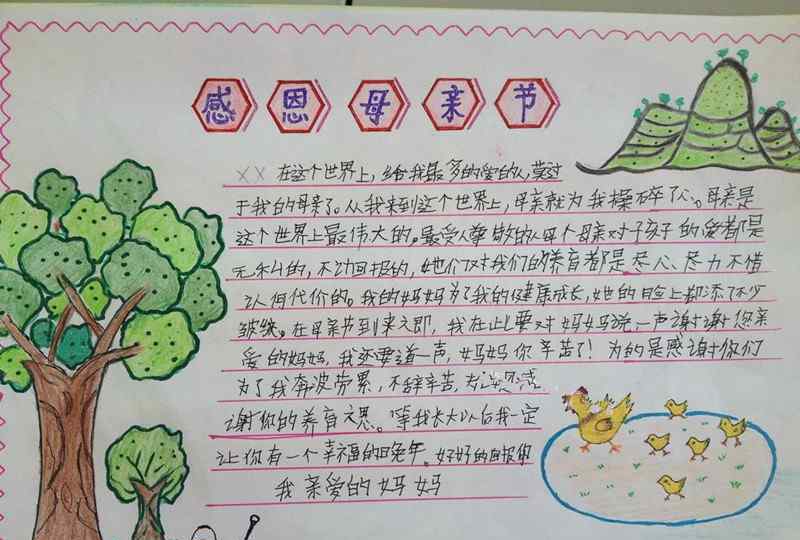 感恩母亲节
XX 在这个世界上,给我最多的爱的人,莫过
于我的母亲了。从我来到这个世界上,母亲就为我操碎了心。母亲是
这个世界上最伟大的。最受人尊敬的人每个母亲对子孩子的爱都是
无私的,不功回报的,她们对我们的养育都是尽心、尽力不惜
认何代价的。我的妈妈为了我的健康成长,她的脸上都添了不少
皱纹。在母亲节到来之即,我在此要对妈妈说一声谢谢您亲
爱的妈妈,我还要道一声,妈妈你辛苦了!为的是感谢你们
为了我奔波劳累,不辞辛苦,
谢你的养育之恩。等我长大以后我一定
让你有一个幸福的晚年。好好的回报你
我亲爱的妈妈